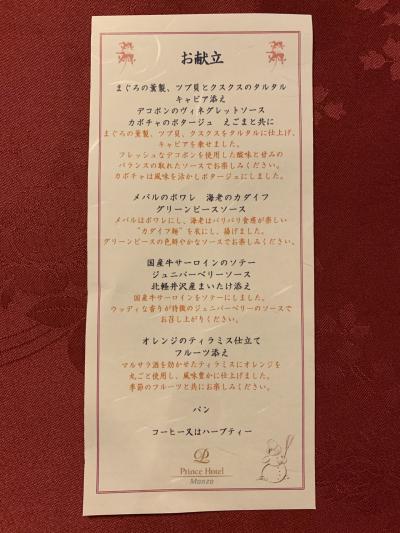 お献立
まぐろの薫製、ツブ貝とクスクスのタルタル
キャビア添え
デコポンのヴィネグレットソース
カボチャのポタージュ　えごまと共に
まぐろの薫製、ツブ貝、クスクスをタルタルに仕上げ、
キャビアを乗せました。
フレッシュなデコポンを使用した酸味と甘みの
バランスの取れたソースでお楽しみください。
カボチャは風味を活かしポタージュにしました。
メバルのポワレ　海老のカダイフ
グリーンピースソース
メバルはポワレにし、海老はパリパリ食感が楽しい
“カダイフ麺”を衣にし、揚げました。
グリーンピースの色鮮やかなソースでお楽しみください。
国産牛サーロインのソテー
ジュニパーベリーソース
北軽井沢産まいたけ添え
国産牛サーロインをソテーにしました。
ウッディな香りが特徴のジュニパーベリーのソースで
お召し上がりください。
オレンジのティラミス仕立て
フルーツ添え
マルサラ酒を効かせたティラミスにオレンジを
丸ごと使用し、風味豊かに仕上げました。
季節のフルーツと共にお楽しみください。
パン
コーヒー又はハーブティー
Prince Hotel
Manza